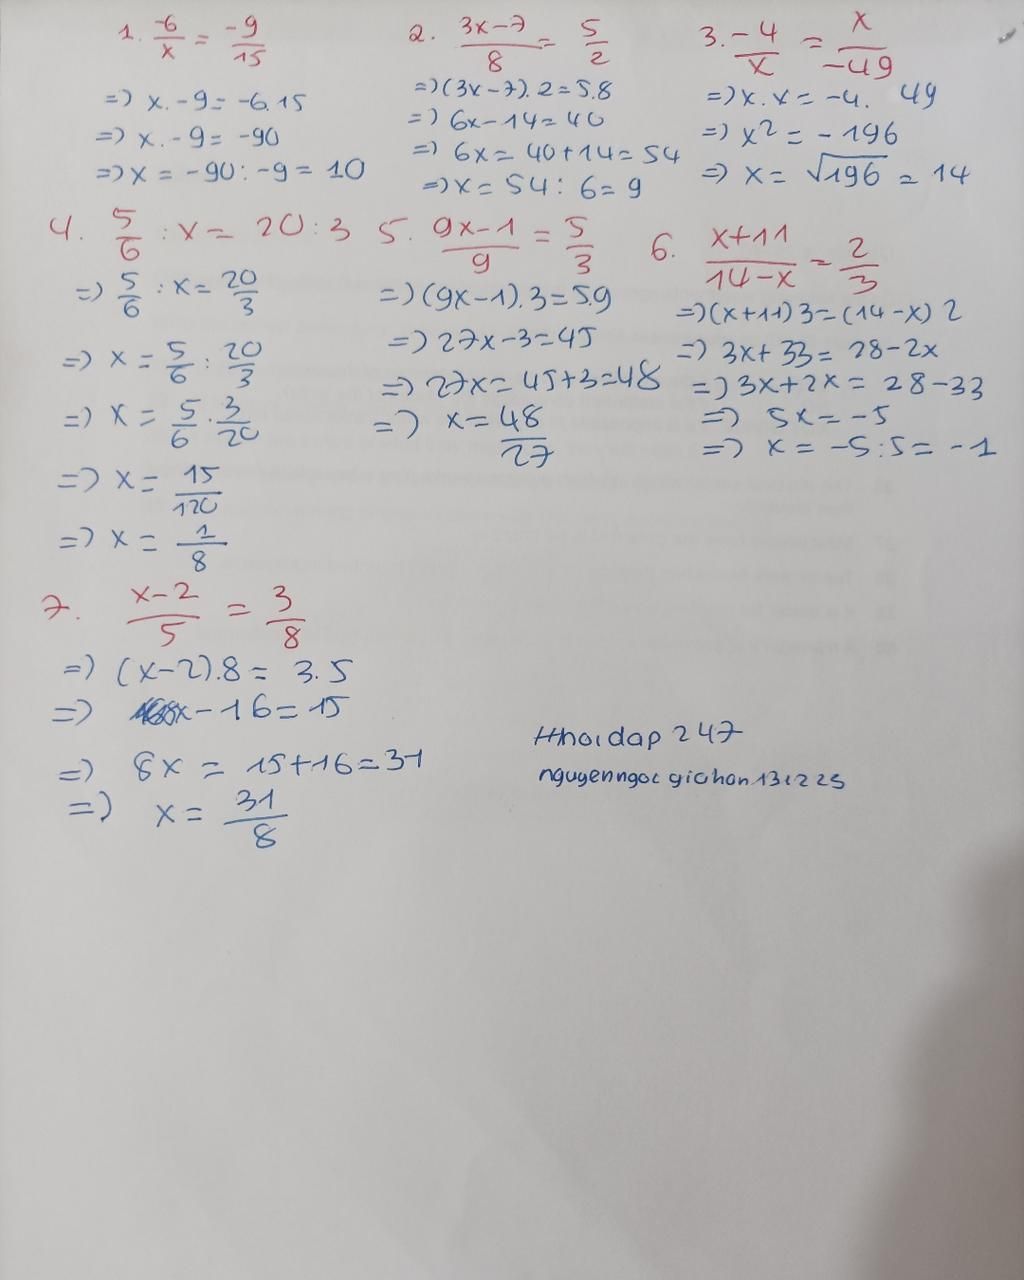 1. -6/x = -9/15
=> x.-9 = -6.15
=> x.-9 = -90
=> x = -90:-9 = 10
2. 3x-7/8 = 5/2
=> (3x-7).2 = 5.8
=> 6x-14 = 40
=> 6x = 40+14 = 54
=> x = 54:6 = 9
3. -4/x = x/-49
=> x.x = -4. 49
=> x² = -196
=> x = √196 = 14
4. 5/6 : x = 20:3
=> 5/6 : x = 20/3
=> x = 5/6 : 20/3
=> x = 5/6 . 3/20
=> x = 15/120
=> x = 1/8
5. 9x-1/9 = 5/3
=> (9x-1).3 = 5.9
=> 27x-3 = 45
=> 27x = 45+3 = 48
=> x = 48/27
6. x+11/14-x = 2/3
=> (x+11)3 = (14-x)2
=> 3x+33 = 28-2x
=> 3x+2x = 28-33
=> 5x = -5
=> x = -5:5 = -1
7. x-2/5 = 3/8
=> (x-2).8 = 3.5
=> 8x-16 = 15
=> 8x = 15+16 = 31
=> x = 31/8
#hoidap247